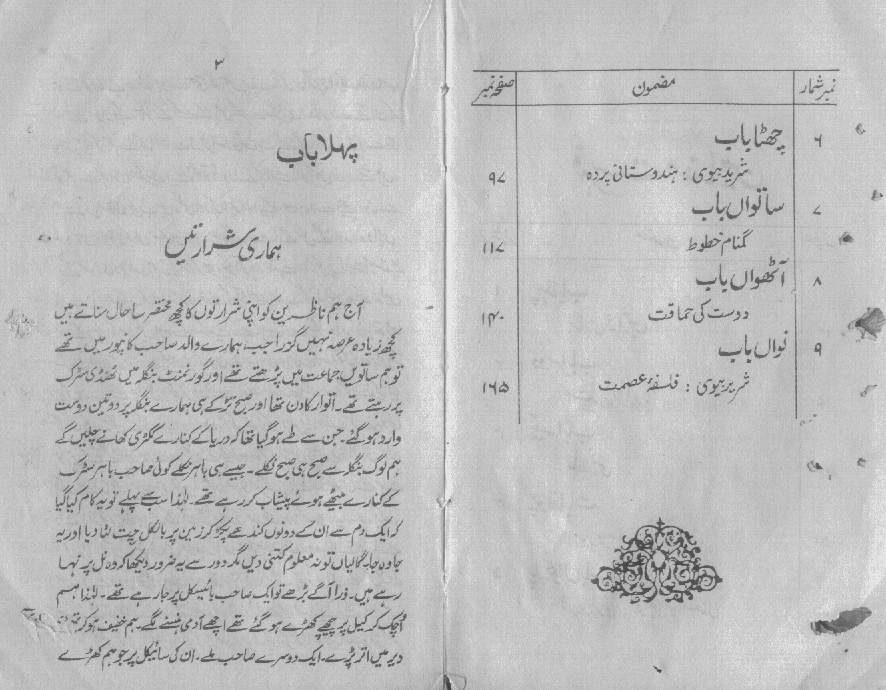 نمبر شمار مضمون صفحہ نمبر
۶ چھٹا باب
شریر بیوی : ہندوستانی پردہ ۹۷
۷ ساتواں باب
گمنام خطوط ۱۱۷
۸ آٹھواں باب
دوست کی حماقت ۱۴۰
۹ نواں باب
شریر بیوی : فلسفۂ عصمت ۱۶۵
۳
پہلا باب
ہماری شرارتیں
آج ہم ناظرین کو اپنی شرارتوں کا کچھ مختصر سا حال سناتے ہیں
کچھ زیادہ عرصہ نہیں گزرا جب ہمارے والد صاحب کانپور میں تھے
تو ہم ساتویں جماعت میں پڑھتے تھے اور گورنمنٹ بنگلہ میں ٹھنڈی سڑک
پر رہتے تھے۔ اتوار کا دن تھا اور صبح تڑکے ہی ہمارے بنگلہ پر دو تین دوست
وارد ہو گئے۔ جن سے طے ہو گیا تھا کہ دریا کے کنارے ککڑی کھانے چلیں گے
ہم لوگ بنگلہ سے صبح ہی صبح نکلے۔ جیسے ہی باہر نکلے کوئی صاحب باہر سڑک
کے کنارے بیٹھے ہوئے پیشاب کر رہے تھے۔ لہٰذا سب سے پہلے تو یہ کام کیا گیا
کہ ایک دم سے ان کے دونوں کندھے پکڑ کر زمین پر بالکل چت لٹا دیا اور یہ
جا وہ جا۔ گالیاں تو نہ معلوم کتنی دیں مگر دور سے یہ ضرور دیکھا کہ وہ نل پر نہا
رہے ہیں۔ ذرا آگے بڑھے تو ایک صاحب بائیسکل پر جا رہے تھے۔ لہٰذا ہم
اُچک کر کیل پر پیچھے کھڑے ہو گئے تھے اچھے آدمی ہنسنے لگے۔ ہم خفیف ہو کر
دیر میں اتر پڑے۔ ایک دوسرے صاحب ملے۔ ان کی سائیکل پر جو ہم کھڑے